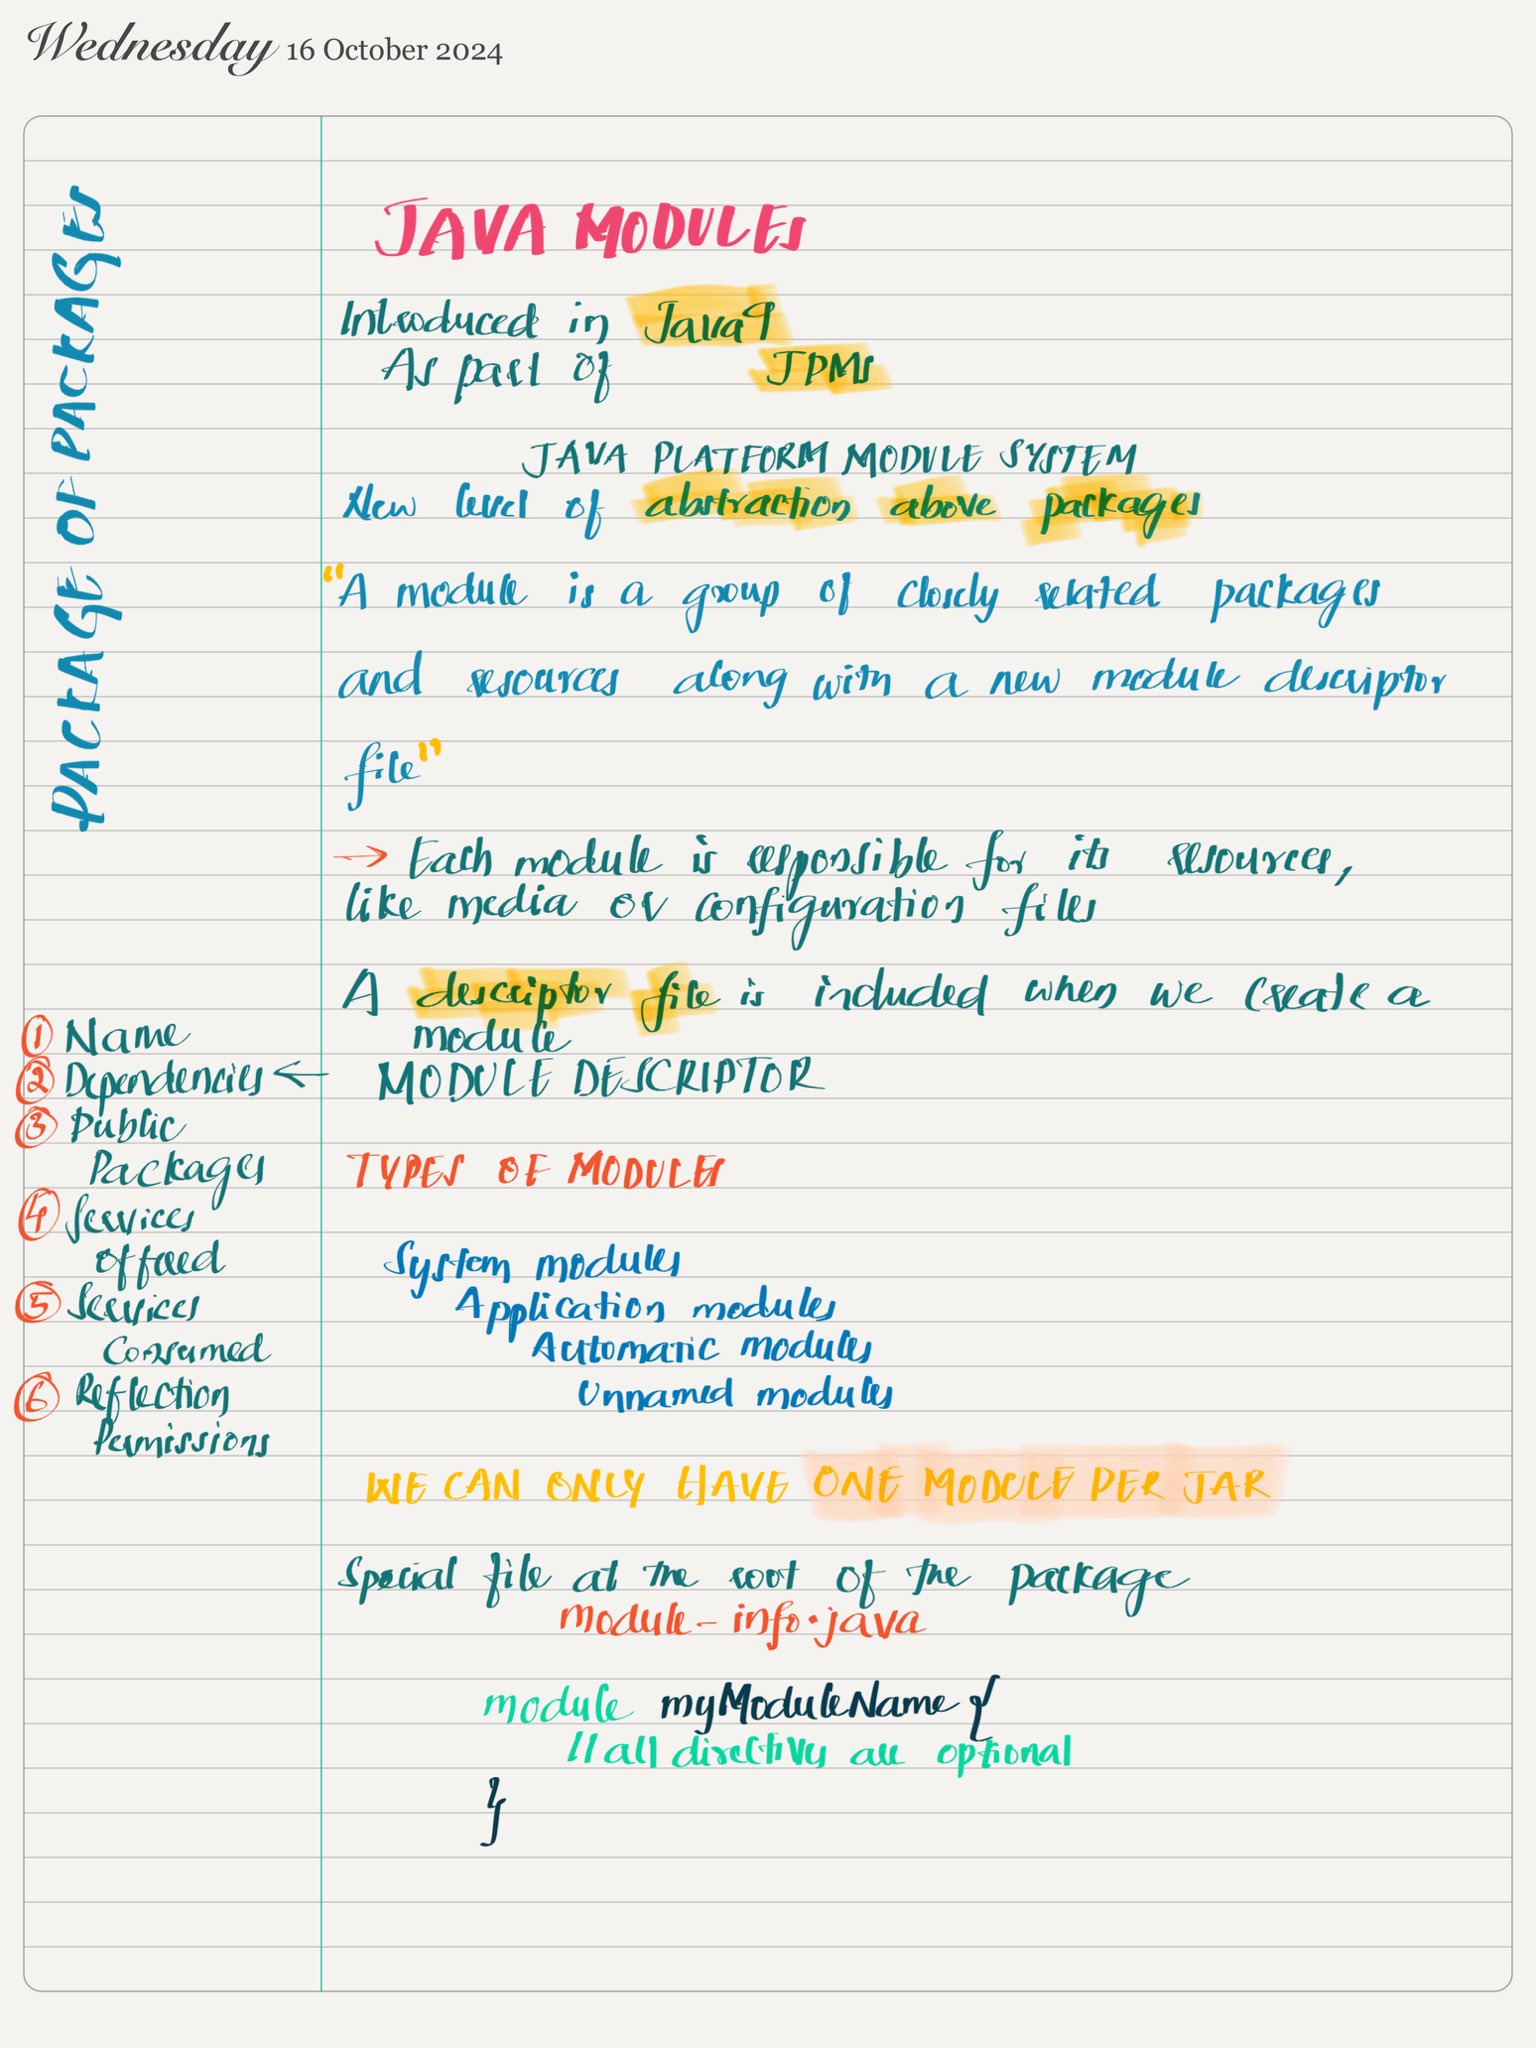 Wednesday 16 October 2024
PACKAGE OF PACKAGES
JAVA MODULES
Introduced in Java9
As part of JPMS
JAVA PLATFORM MODULE SYSTEM
New level of abstraction above packages
"A module is a group of closely related packages
and resources along with a new module descriptor
file"
→ Each module is responsible for its resources,
like media or configuration files
A descriptor file is included when we create a
module
MODULE DESCRIPTOR
① Name
② Dependencies ←
③ Public
Packages
④ Services
Offered
⑤ Services
Consumed
⑥ Reflection
Permissions
TYPES OF MODULES
System modules
Application modules
Automatic modules
Unnamed modules
WE CAN ONLY HAVE ONE MODULE PER JAR
Special file at the root of the package
module-info.java
module myModuleName {
//all directives are optional
}